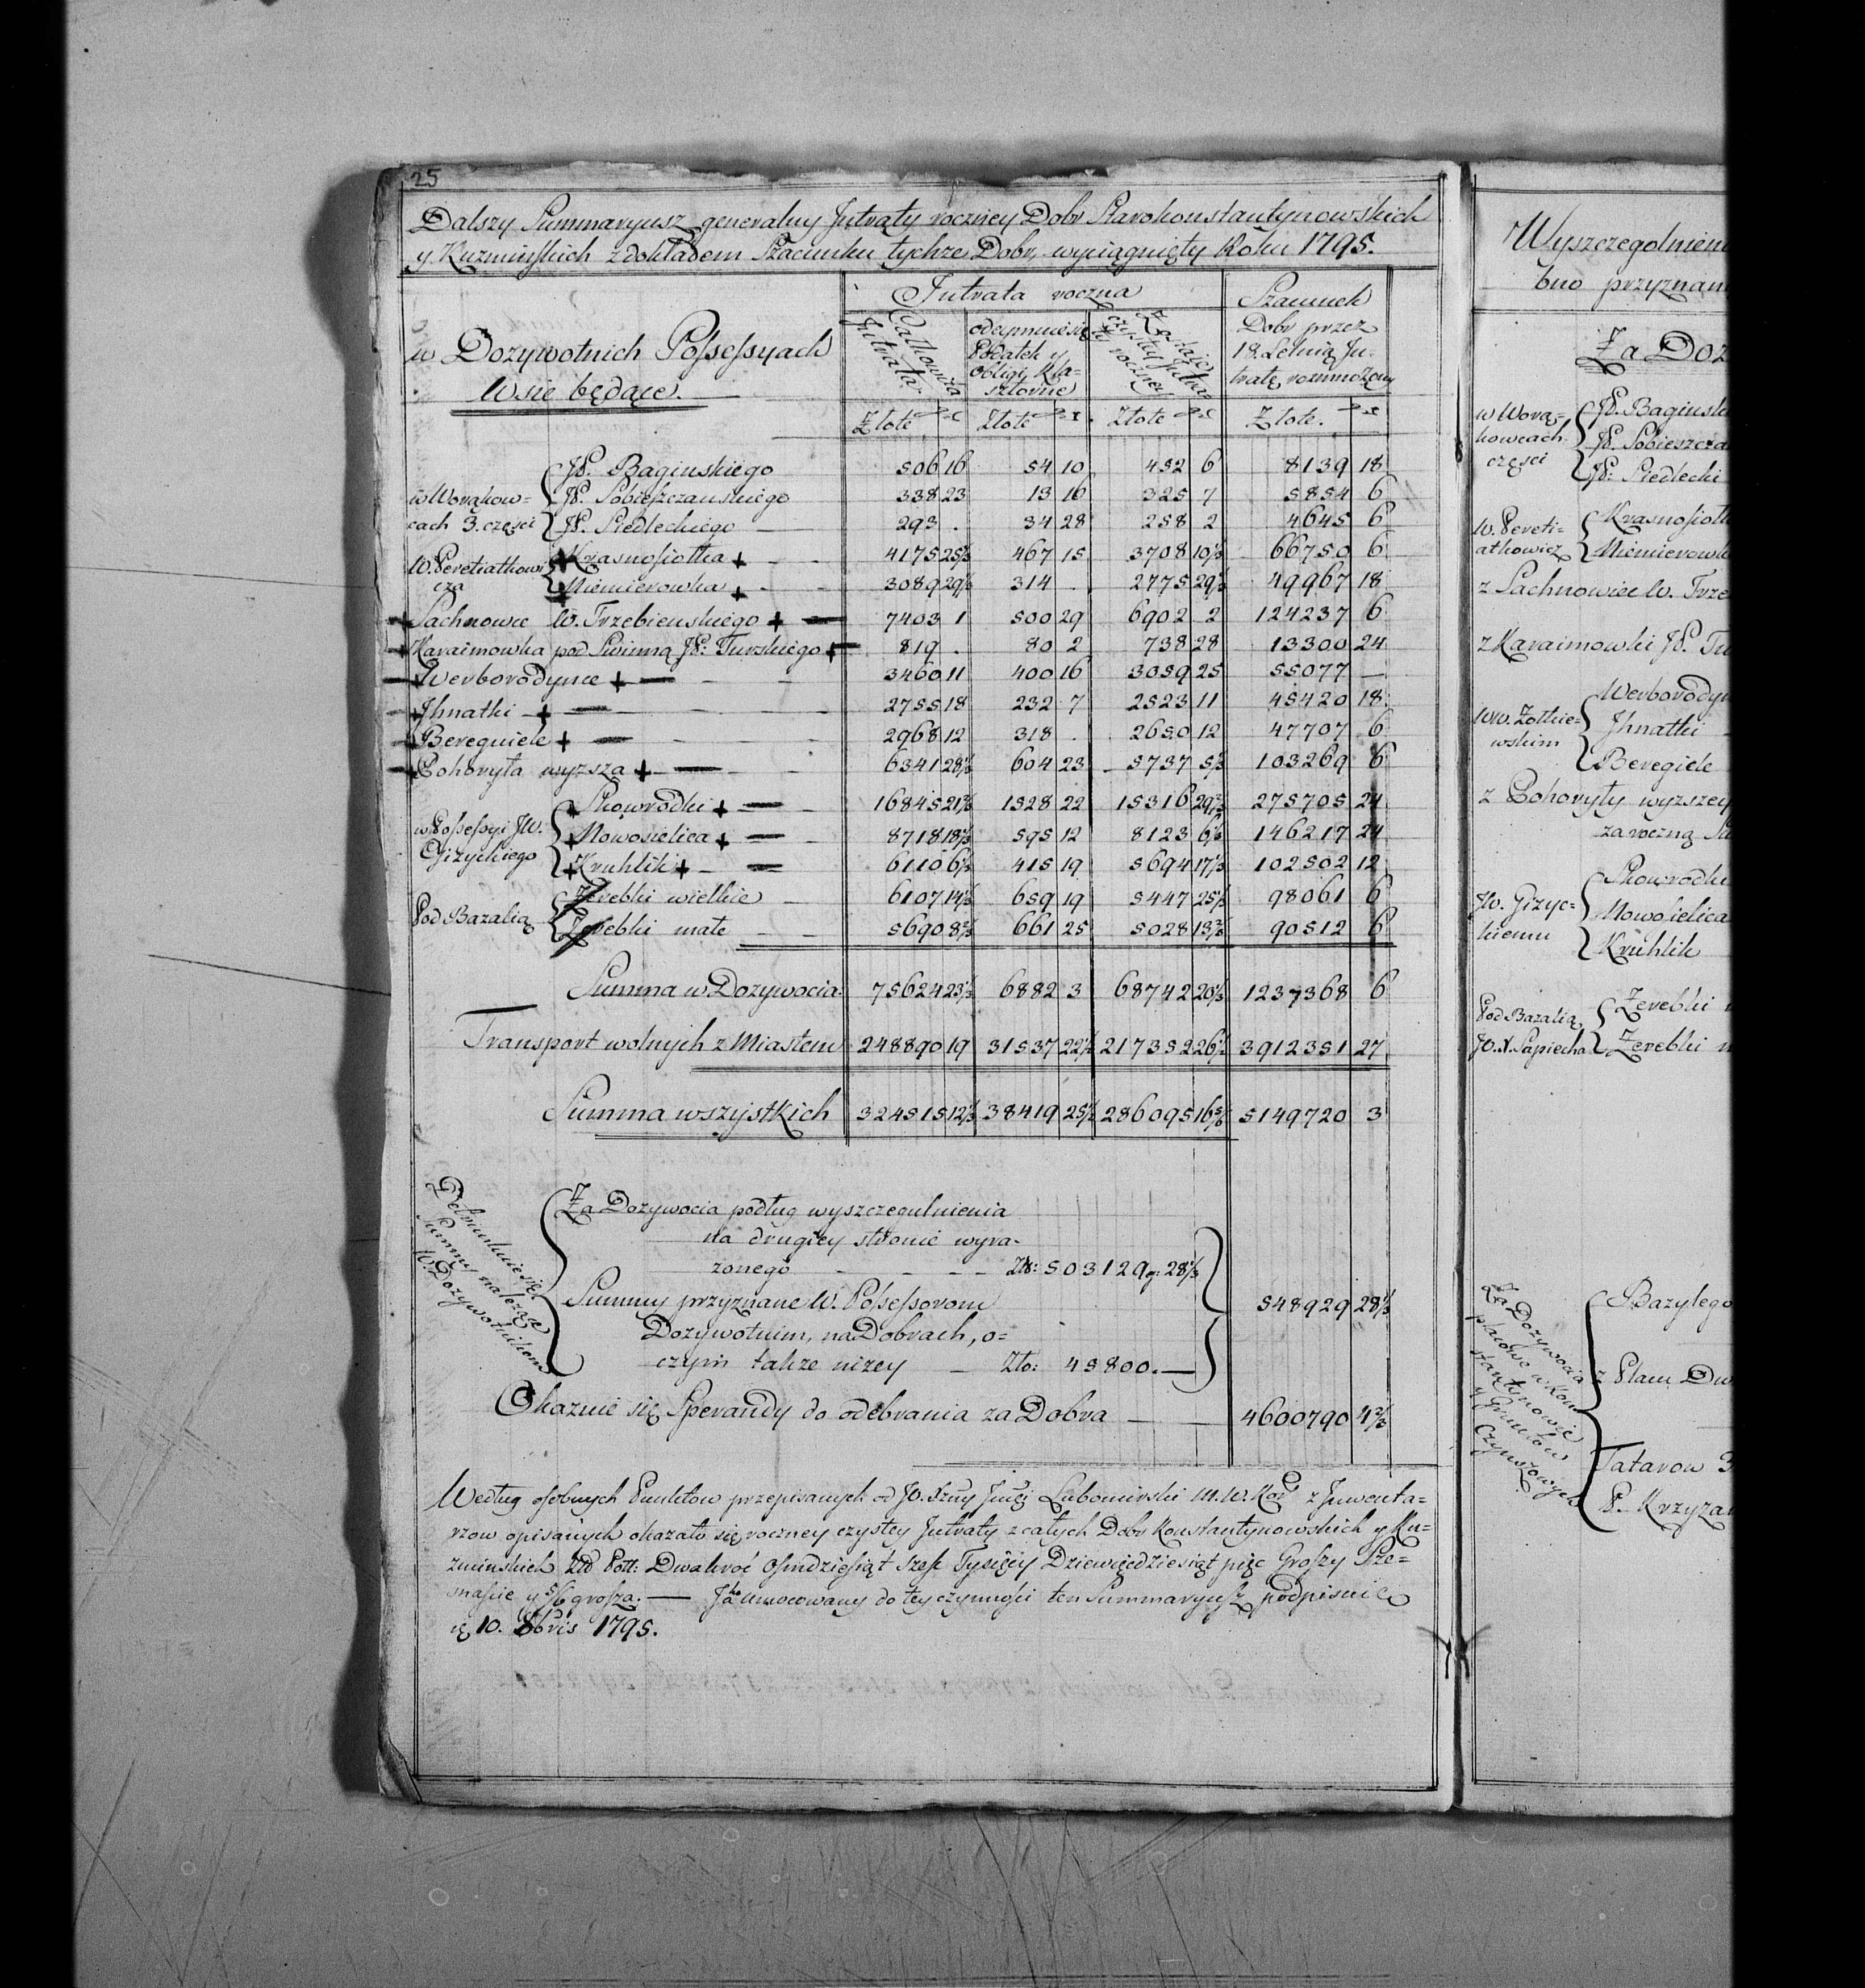 25
Dalszy Summaryusz generalny Jntraty roczney Dobr Starokonstantynowskich
y Kuzminskich z dokładem Szacunku tychże Dobr, wyciągnięty Roku 1795.
w Dozywotnich Possessyach
Wsie będące.
Jntrata roczna
Całkowita Jntrata
odeymuie się Podatek y obligi Klasztorne
Zostaie czystey Jntraty roczney
Szacunek Dobr przez 18. Letnią Jntratę rozmnożony
Złote gr Złote gr Złote gr Złote. gr
w Worąkowcach 3. części
JP. Baginskiego 506 16 54 10 452 6 8139 18
JP. Sobieszczanskiego 338 23 13 16 325 7 5854 6
JP. Siedleckiego 293 . 34 28 258 2 4645 6
W. Peretiatkowicza
Krasnosiołka + 4175 25⅓ 467 15 3708 10⅓ 66750 6
Niemierowka + 3089 29⅓ 314 . 2775 29⅓ 49967 18
Sachnowce W. Trzebienskiego + 7403 1 500 29 6902 2 124237 6
Karaimowka pod Swinną JP: Turskiego + 819 . 80 2 738 28 13300 24
Werborodynce + 3460 11 400 16 3059 25 55077 —
Jhnatki + 2755 18 232 7 2523 11 45420 18
Bereguiele + 2968 12 318 . 2650 12 47707 6
Pohoryła wyzsza + 6341 28⅔ 604 23 5737 5⅔ 103269 6
w Possessyi JW. Gizyckiego
Skowrodki + 16845 21⅔ 1528 22 15316 29⅔ 275705 24
Nowosielica + 8718 18⅔ 595 12 8123 6⅔ 146217 24
Kruhlik + 6110 6⅓ 415 19 5694 17⅓ 102502 12
Pod Bazalią
Zerebki wielkie 6107 14⅓ 659 19 5447 25⅓ 98061 6
Zerebki małe 5690 8⅔ 661 25 5028 13⅔ 90512 6
Summa w Dozywocia: 75624 23⅓ 6882 3 68742 20⅓ 1237368 6
Transport wolnych z Miastem 248890 19 31537 22½ 217352 26½ 3912351 27
Summa wszystkich 324515 12⅓ 38419 25½ 286095 16⅚ 5149720 3
Za Dozywocia podług wyszczegulnienia
na drugiey stronie wyra-
zonego Zło: 503129 g: 28⅓
Summy przyznane W. Possessorom
Dozywotnim, na Dobrach, o=
czym takze nizey Zło: 45800.—
548929 28⅓
Summy należące
W. Dozywotnikom
Okazuie się Sperandy do odebrania za Dobra 4600790 4⅔
Według osobnych Punktow przepisanych od JO. Lubomirski z Jnwenta=
rzow opisanych okazało się roczney czystey Jntraty z całych Dobr Konstantynowskich y Ku=
zminskich Złł Poll: Dwakroć Osmdziesiąt Szesć Tysięcy Dziewięcdziesiąt pięć Groszy Sze=
snascie y 5/6 grosza. — Jako umocowany do tey czynnosci ten Summaryusz podpisuie
się 10. 8bris 1795.
Wyszczegolnieni
bno przyznan
Za Doz
w Worą=
kowcach
części
JP. Baginsk
JP. Sobieszcza
JP: Siedlecki
W. Pereti=
atkowicz
Krasnosiołk
Niemierowk
z Sachnowiec W. Trze
z Karaimowki JP. Tu
WW. Zołkie=
wskim
Werborodyn
Jhnatki
Beregiele
z Pohoryły wyzszey
za roczną
JW. Gizyc=
kiemu
Skowrodki
Nowosielica
Kruhlik
Pod Bazalią
JO. X. Sapiecha
Zerebki
Zerebki
Za Dozywocia
placowe w Kon
stantynowie
y Gruntow
Czynszowych
Bazylego
z Placu Dw
Tatarow 3
P. Krzyza